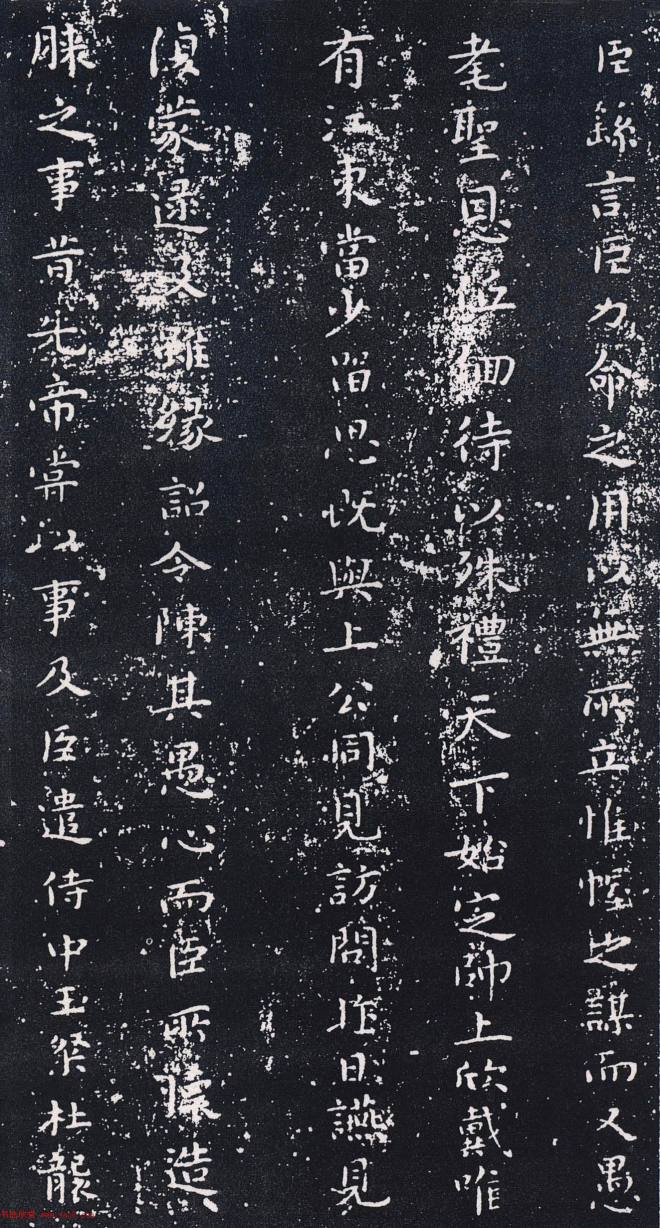 臣繇言臣力命之用以無所立惟幄之謀而又愚
耄聖恩低佪待以殊禮天下始定師上欣戴唯
有江東當少留思既與上公同見訪問昨日讌見
復蒙逮及雖緣詔令陳其愚心而臣所懷造
膝之事昔先帝嘗以事及臣遣侍中王粲杜襲